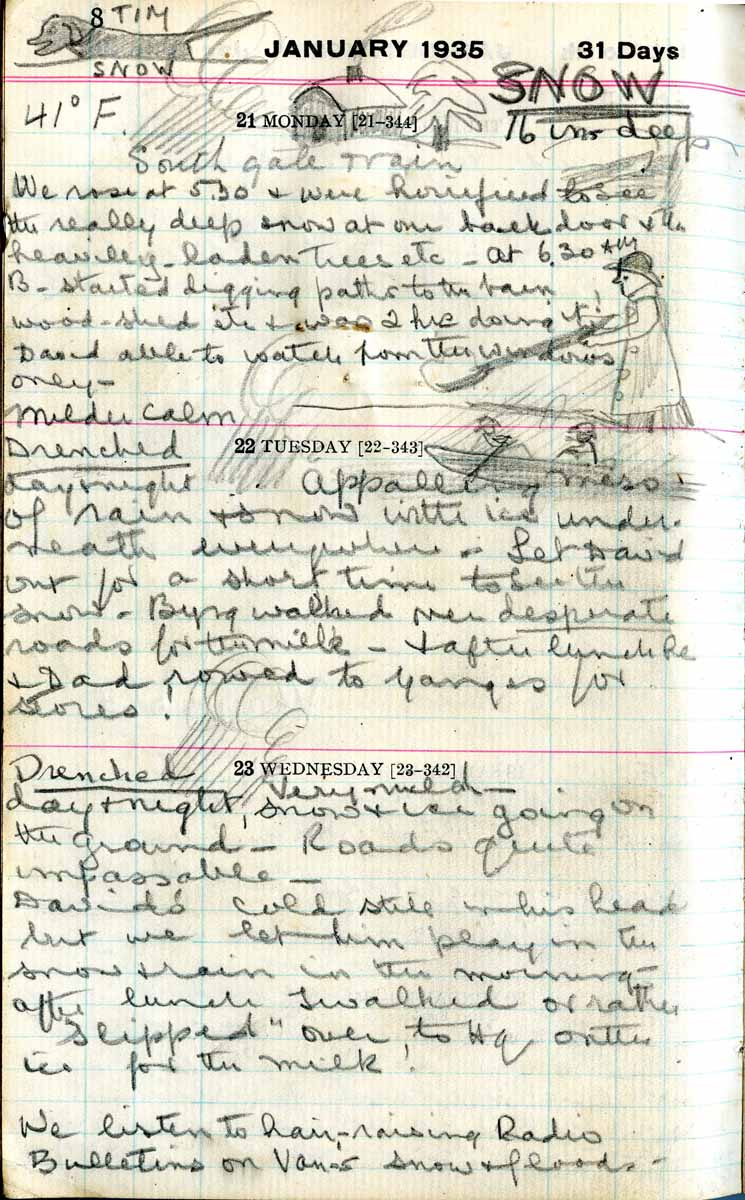 8 TIM
SNOW
JANUARY 1935 31 Days
SNOW
16 ins deep
41° F.
21 MONDAY [21-344]
South gate rain
We rose at 5.30 & were horrified to see
the really deep snow at our back door & the
heavily-laden trees etc - At 6.30 AM
B- started digging paths to the barn
wood-shed etc & was 2 hrs doing it!
David able to watch from the windows
only-
Milder Calm
22 TUESDAY [22-343]
Drenched
day & night Appalling mess
of rain & snow with ice under-
neath everywhere - Let David
out for a short time to see the
snow - Byng walked over desperate
roads for the milk - & after lunch he
& Dad rowed to Ganges for
stores!
23 WEDNESDAY [23-342]
Drenched Very mild-
day & night, snow & ice going on
the ground - Roads quite
impassable -
David's cold still in his head
but we let him play in the
snow & rain in the morning-
after lunch I walked or rather
"slipped" over to Hq on the
ice for the milk!
We listen to hair-raising Radio
Bulletins on Van-s snow & floods-